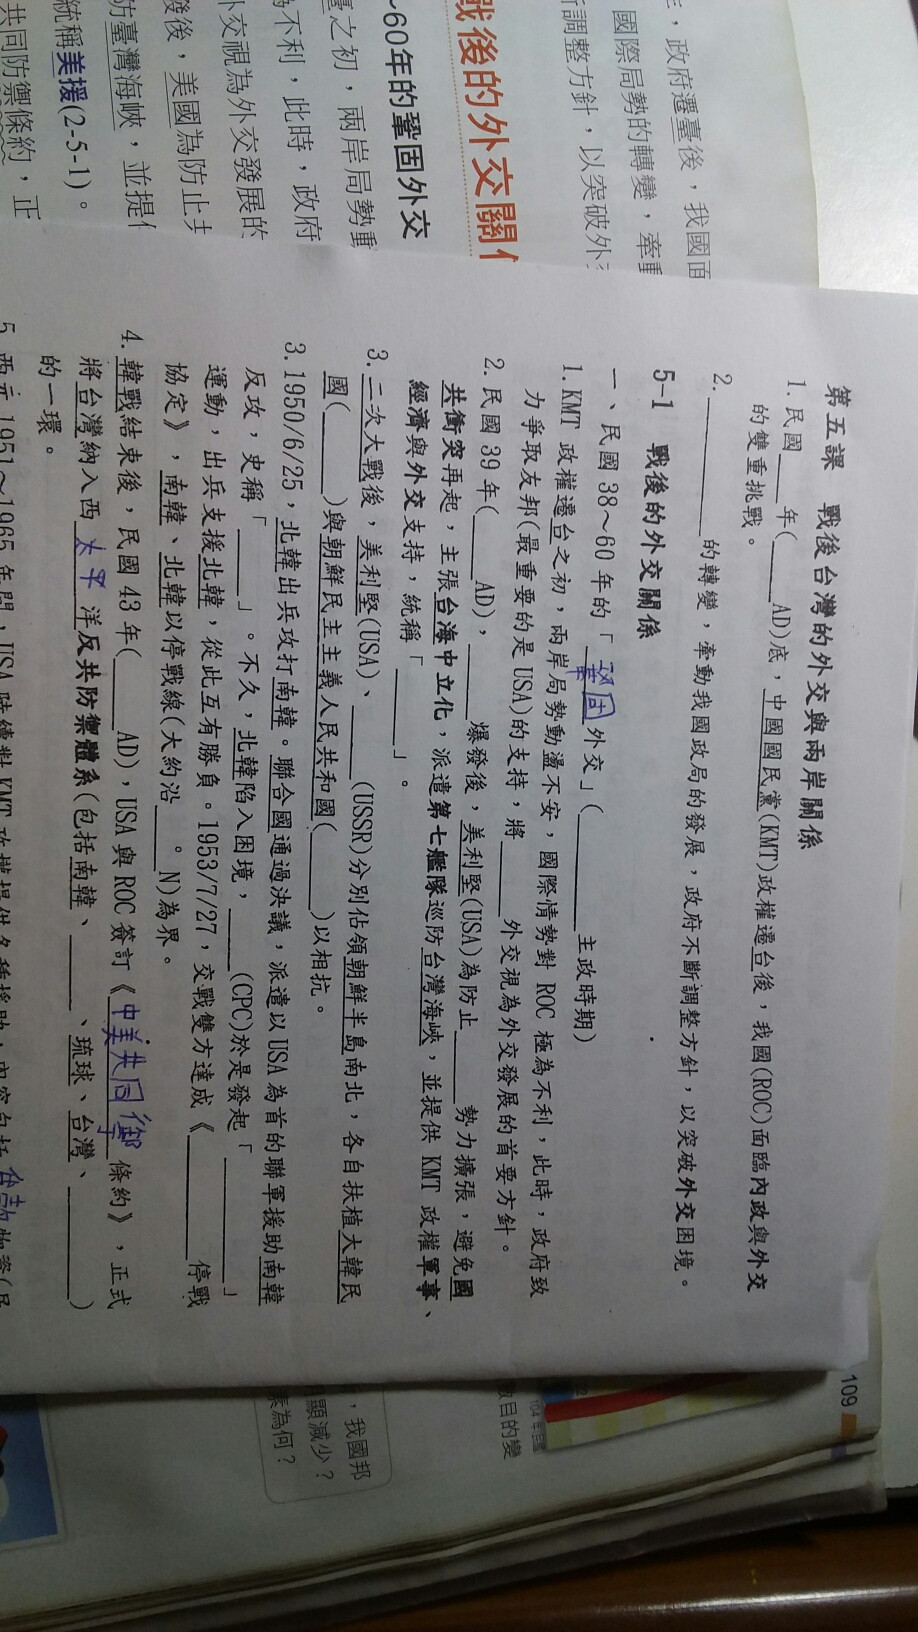 ，政府遷臺後，我國面
國際局勢的轉變，牽動
調整方針，以突破外
戰後的外交關
~60年的鞏固外交
之初，兩岸局勢動
不利，此時，政府
外交視為外交發展的
發後，美國為防止共
防臺灣海峽，並提
統稱美援(2-5-1)。
共同防禦條約，正
第五課 戰後台灣的外交與兩岸關係
1. 民國___年(____AD)底，中國國民黨(KMT)政權遷台後，我國(ROC)面臨內政與外交
的雙重挑戰。
2. __________的轉變，牽動我國政局的發展，政府不斷調整方針，以突破外交困境。
5-1 戰後的外交關係
一、民國 38～60 年的「鞏固外交」(________主政時期)
1. KMT 政權遷台之初，兩岸局勢動盪不安，國際情勢對 ROC 極為不利，此時，政府致
力爭取友邦(最重要的是 USA)的支持，將_____外交視為外交發展的首要方針。
2. 民國 39 年(____AD)，_____爆發後，美利堅(USA)為防止_____勢力擴張，避免國
共衝突再起，主張台海中立化，派遣第七艦隊巡防台灣海峽，並提供 KMT 政權軍事、
經濟與外交支持，統稱「______」。
3. 二次大戰後，美利堅(USA)、_____(USSR)分別佔領朝鮮半島南北，各自扶植大韓民
國(______)與朝鮮民主主義人民共和國(______)以相抗。
3. 1950/6/25，北韓出兵攻打南韓。聯合國通過決議，派遣以 USA 為首的聯軍援助南韓
反攻，史稱「_____」。不久，北韓陷入困境，____(CPC)於是發起「__________」
運動，出兵支援北韓，從此互有勝負。1953/7/27，交戰雙方達成《__________停戰
協定》，南韓、北韓以停戰線(大約沿____° N)為界。
4. 韓戰結束後，民國 43 年(____AD)，USA 與 ROC 簽訂《中美共同禦條約》，正式
將台灣納入西太平洋反共防禦體系(包括南韓、_____、琉球、台灣、________)
的一環。
5. 西元 1951～1965 年間，USA 陸續對 KMT 政權提供各種援助，內容包括
109
數目的變
，我國邦
顯減少？
素為何？